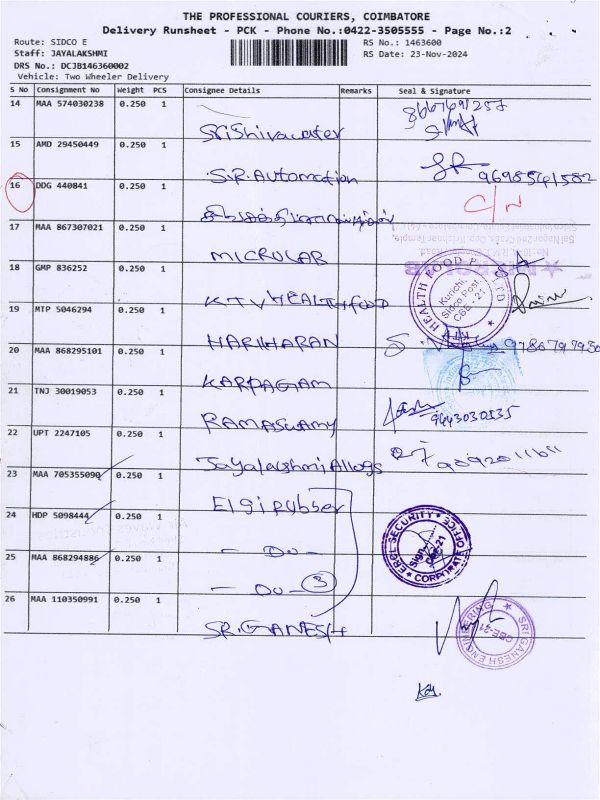 THE PROFESSIONAL COURIERS, COIMBATORE
Delivery Runsheet - PCK - Phone No.:0422-3505555 - Page No.:2
Route: SIDCO E
RS No.: 1463600
Staff: JAYALAKSHMI
RS Date: 23-Nov-2024
DRS No.: DCJB146360002
Vehicle: Two Wheeler Delivery
S No Consignment No Weight PCS Consignee Details Remarks Seal & Signature
14 MAA 574030238 0.250 1 Srishivawater
15 AMD 29450449 0.250 1 S.R. Automation 9698541582
16 DDG 440841 0.250 1 C/N
17 MAA 867307021 0.250 1 MICROLAB
18 GMP 836252 0.250 1 KTV HEALTH FOOD HEALTH FOOD P LTD KTV Kurichi, Sidco Post CBE-21
19 MTP 5046294 0.250 1 HARIHARAN
20 MAA 868295101 0.250 1 KARPAGAM
21 TNJ 30019053 0.250 1 RAMASWAMY 9443030535
22 UPT 2247105 0.250 1 Jayalakshmi Alloys
23 MAA 705355090 0.250 1 Elgi rubber
24 HDP 5098444 0.250 1 - Do - ERCL SECURITY OFFICE CORPORATE Sign CBE-21
25 MAA 868294886 0.250 1 - Do - 3
26 MAA 110350991 0.250 1 SR.GANESH SRI GANESH ENGINEERING CBE-21